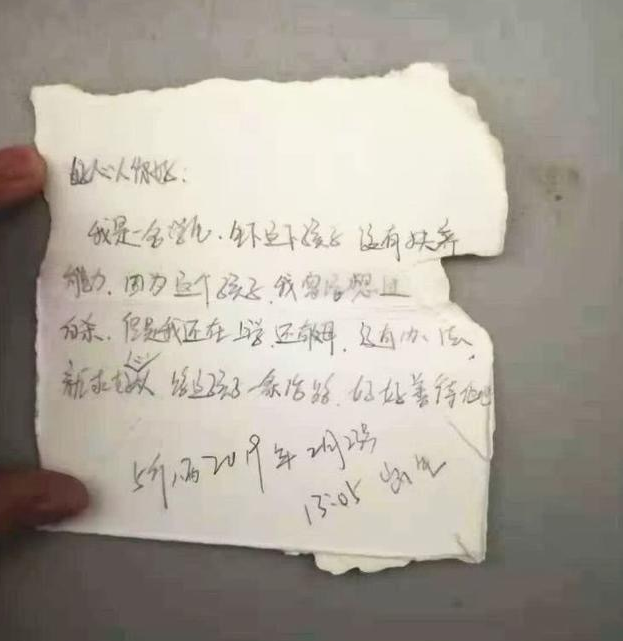 好心人你好：
我是一名学生，生下这个孩子没有扶养
能力，因为这个孩子，我曾经想过
自杀，但是我还在上学，还有母，没有办法，
祈求好心人给这孩子一条活路，好好善待他吧
5斤八两2019年2月2号
13:05出生